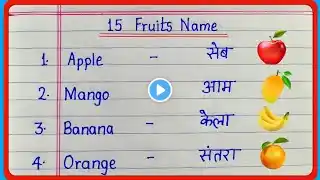 15 Fruits Name
1. Apple - सेब
2. Mango - आम
3. Banana - केला
4. Orange - संतरा